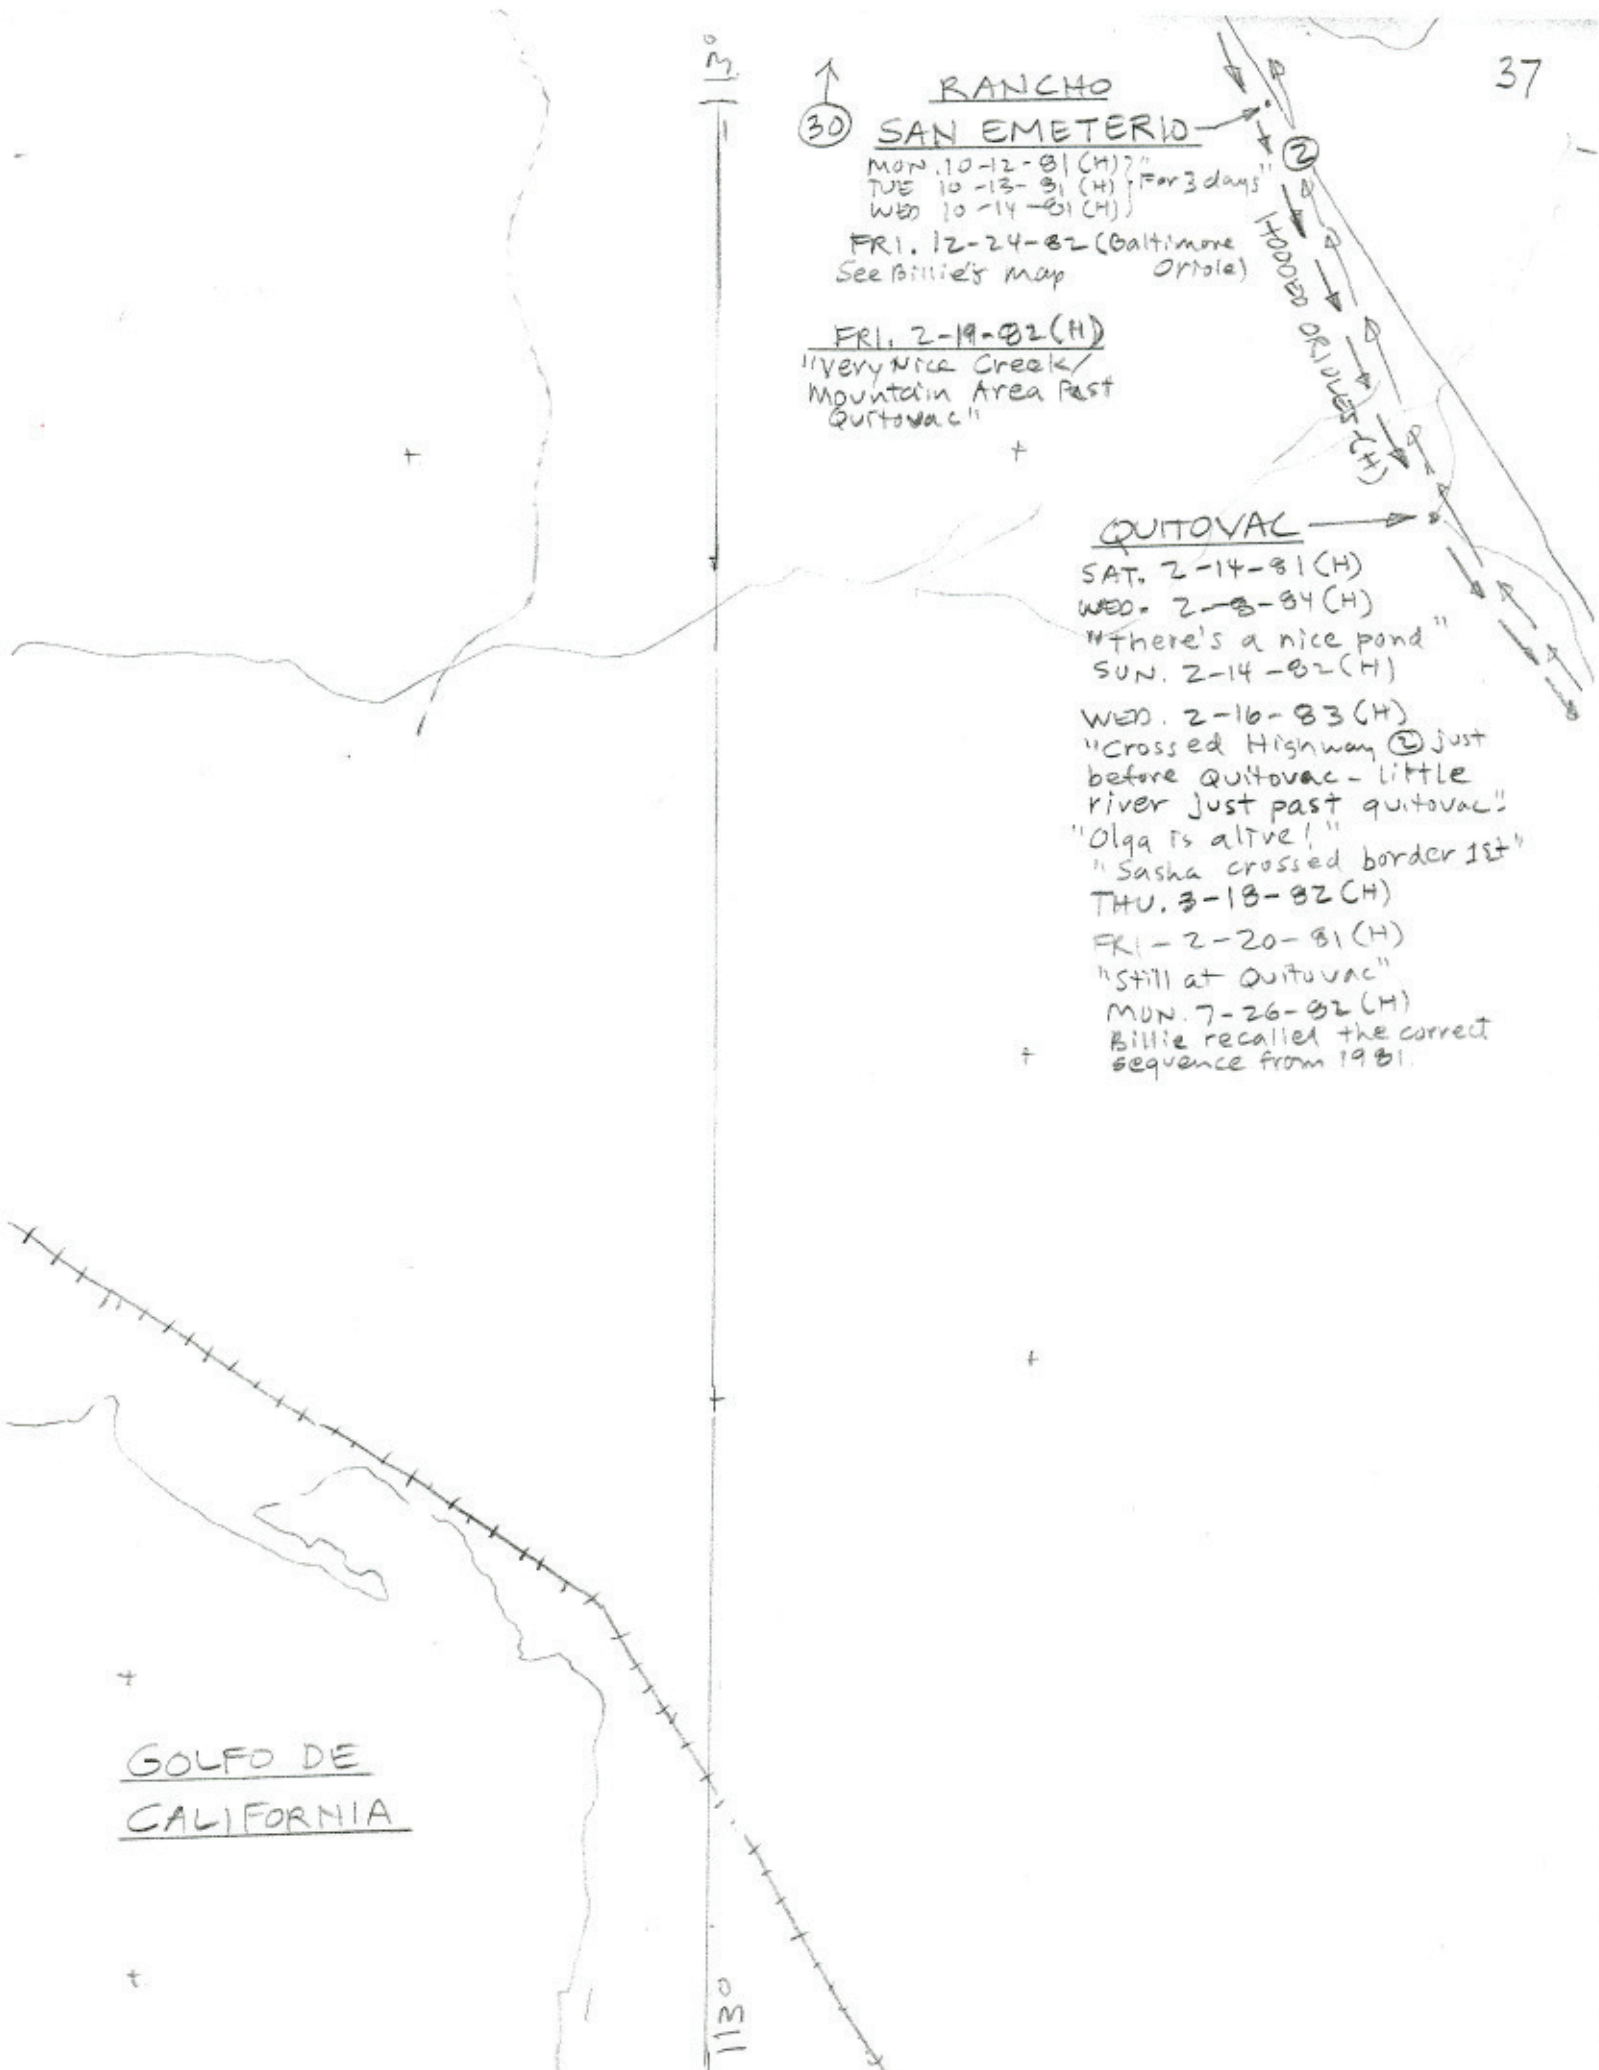 37
113°
30
RANCHO
SAN EMETERIO
MON. 10-12-81 (H)
TUE 10-13-81 (H)
WED 10-14-81 (H)
"For 3 days"
FRI. 12-24-82 (Baltimore
See Billie's map Oriole)
FRI. 2-19-82 (H)
"Very Nice Creek/
Mountain Area Past
Quitovac"
2
HOODED ORIOLES (H)
QUITOVAC
SAT. 2-14-81 (H)
WED. 2-8-84 (H)
"There's a nice pond"
SUN. 2-14-82 (H)
WED. 2-16-83 (H)
"Crossed Highway 2 just
before Quitovac - little
river just past quitovac"
"Olga is alive!"
"Sasha crossed border 1st"
THU. 3-18-82 (H)
FRI - 2-20-81 (H)
"Still at Quitovac"
MON. 7-26-82 (H)
Billie recalled the correct
sequence from 1981.
GOLFO DE
CALIFORNIA
113°